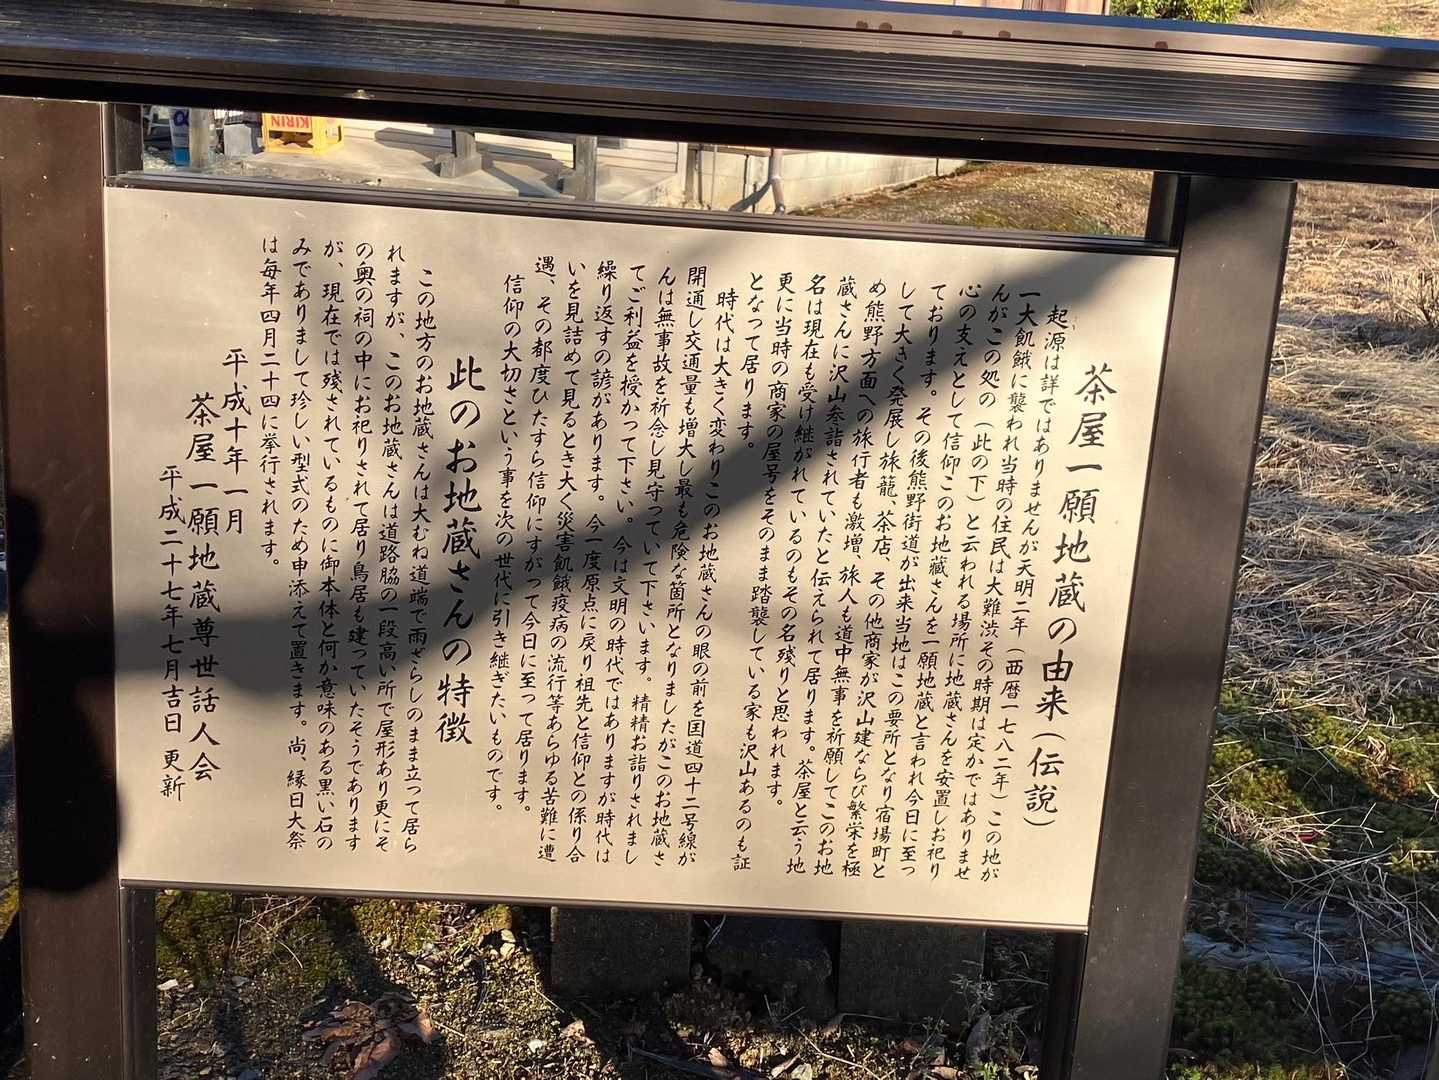 茶屋一願地蔵の由来(伝説)
起源は詳ではありませんが天明二年(西暦一七八二年)この地が
一大飢餓に襲われ当時の住民は大難渋その時期は定かではありませ
んがこの処の(此の下)と云われる場所に地蔵さんを安置しお祀り
心の支えとして信仰このお地蔵さんを一願地蔵と言われ今日に至っ
ております。その後熊野街道が出来当地はこの要所となり宿場町と
して大きく発展し旅籠、茶店、その他商家が沢山建ならび繁栄を極
め熊野方面への旅行者も激増、旅人も道中無事を祈願してこのお地
蔵さんに沢山参詣されていたと伝えられて居ります。茶屋と云う地
名は現在も受け継がれているのもその名残りと思われます。
更に当時の商家の屋号をそのまま踏襲している家も沢山あるのも証
となって居ります。
時代は大きく変わりこのお地蔵さんの眼の前を国道四十二号線が
開通し交通量も増大し最も危険な箇所となりましたがこのお地蔵さ
んは無事故を祈念し見守っていて下さいます。精精お詣りされまし
てご利益を授かって下さい。今は文明の時代ではありますが時代は
繰り返すの諺があります。今一度原点に戻り祖先と信仰との係り合
いを見詰めて見るとき大く災害飢餓疫病の流行等あらゆる苦難に遭
遇、その都度ひたすら信仰にすがって今日に至って居ります。
信仰の大切さという事を次の世代に引き継ぎたいものです。
此のお地蔵さんの特徴
この地方のお地蔵さんは大むね道端で雨ざらしのまま立って居ら
れますが、このお地蔵さんは道路脇の一段高い所で屋形あり更にそ
の奥の祠の中にお祀りされて居り鳥居も建っていたそうであります
が、現在では残されているものに御本体と何か意味のある黒い石の
みでありまして珍しい型式のため申添えて置きます。尚、縁日大祭
は毎年四月二十四に挙行されます。
平成十年一月
茶屋一願地蔵尊世話人会
平成二十七年七月吉日 更新
KIRIN